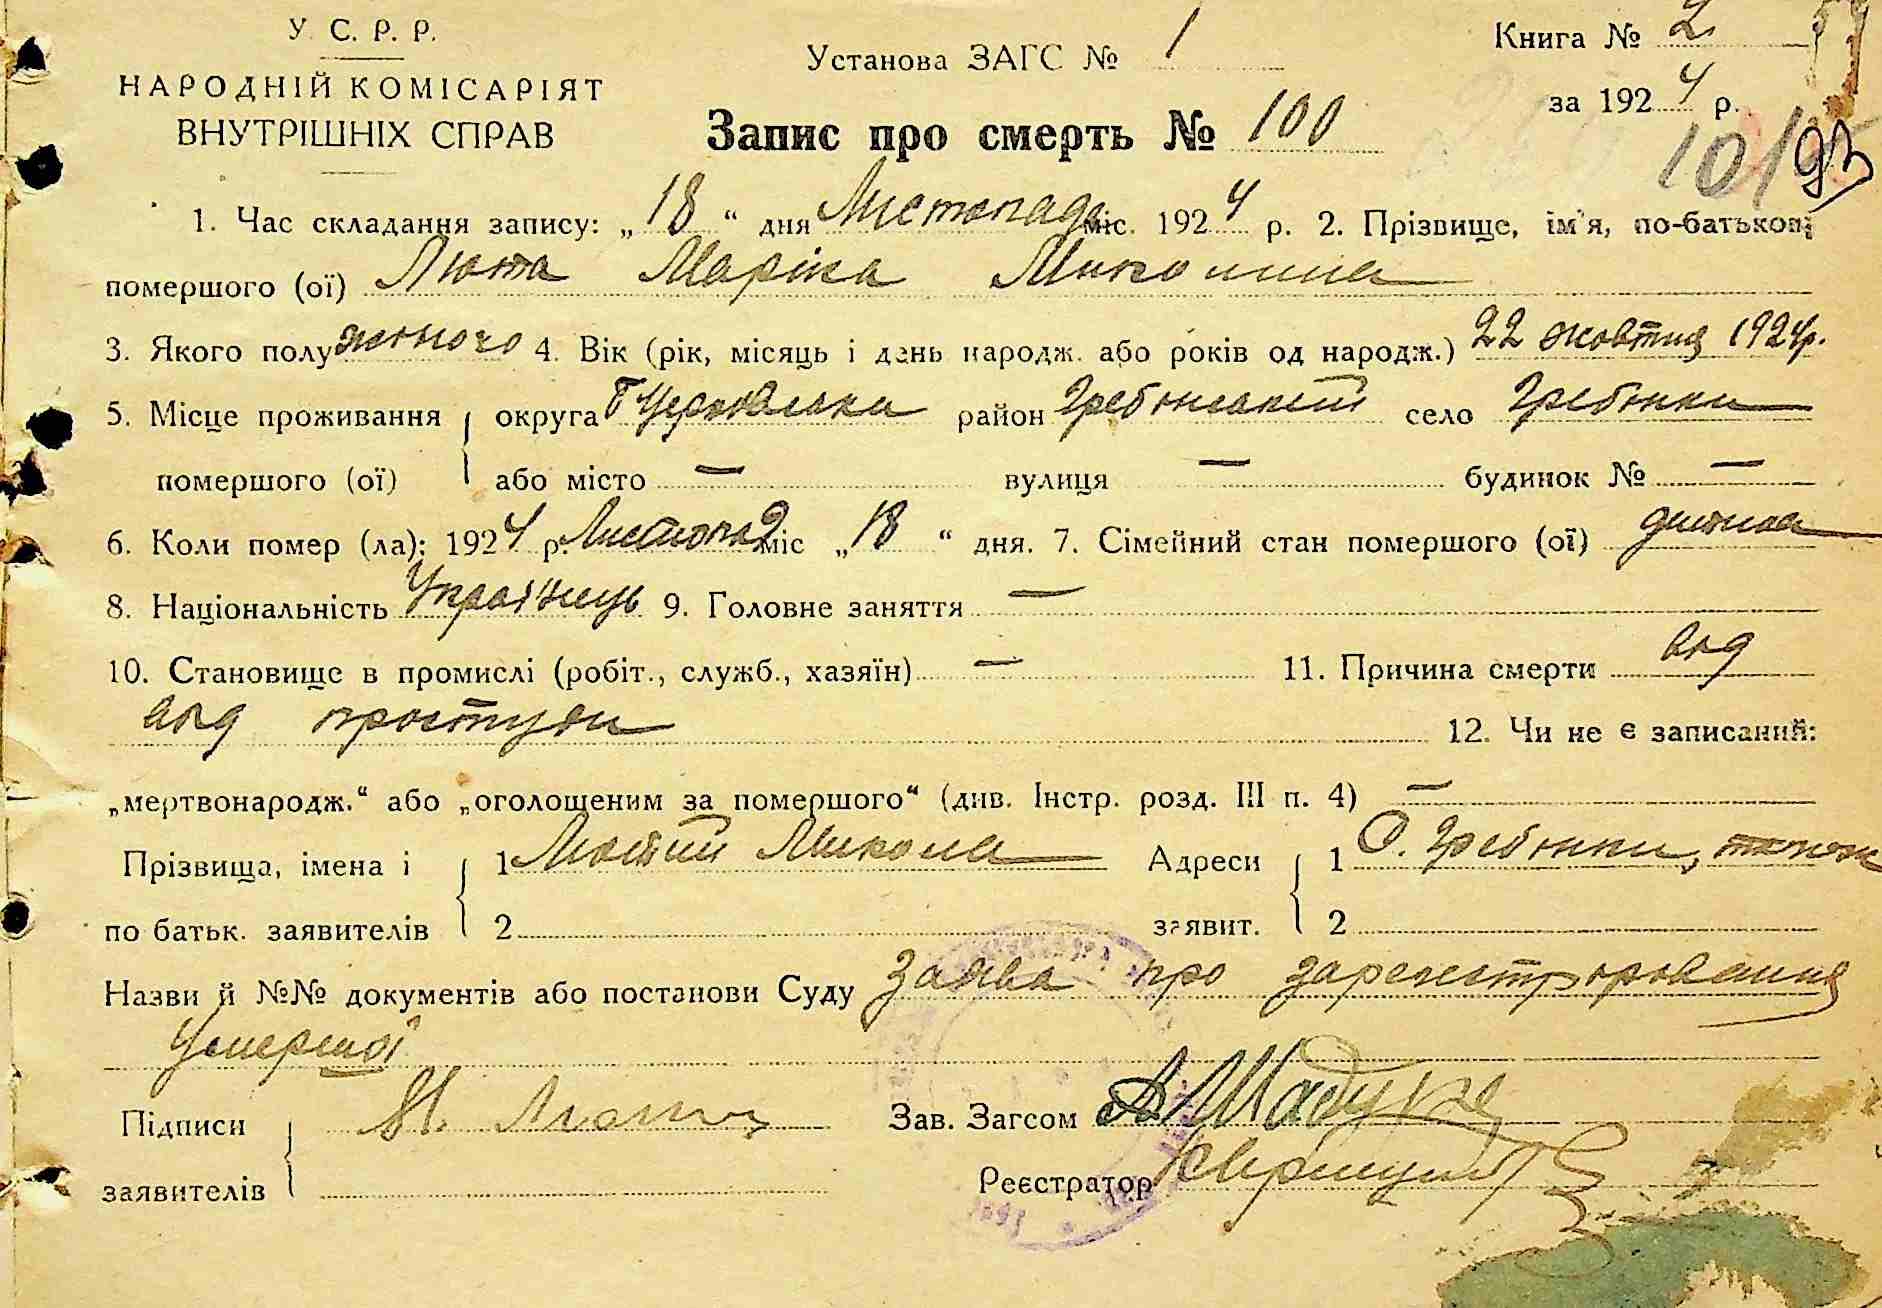 У. С. Р. Р.
НАРОДНІЙ КОМІСАРІЯТ
ВНУТРІШНІХ СПРАВ
Установа ЗАГС № 1
Книга № 2
за 1924 р.
Запис про смерть № 100
10/93
1. Час складання запису: „18“ дня Листопада міс. 1924 р. 2. Прізвище, ім'я, по-батькові
помершого (ої) Люта Маріка Миколина
3. Якого полу женочо 4. Вік (рік, місяць і день народж. або років од народж.) 22 жовтня 1924р.
5. Місце проживання округа район Гребінський село Гребінки
помершого (ої) або місто — вулиця — будинок № —
6. Коли помер (ла): 1924 р. Листопад міс „18“ дня. 7. Сімейний стан помершого (ої) дитина
8. Національність Українець 9. Головне заняття —
10. Становище в промислі (робіт., служб., хазяїн) — 11. Причина смерти від
від простуди 12. Чи не є записаний:
„мертвонародж.“ або „оголошеним за помершого“ (див. Інстр. розд. III п. 4) —
Прізвища, імена і 1 Лютий Микола Адреси 1 С. Гребінки, також
по батьк. заявителів 2 заявит. 2
Назви й №№ документів або постанови Суду Заява про зарегістрювання
Умершої
Підписи М. Лютий Зав. Загсом
заявителів Реєстратор